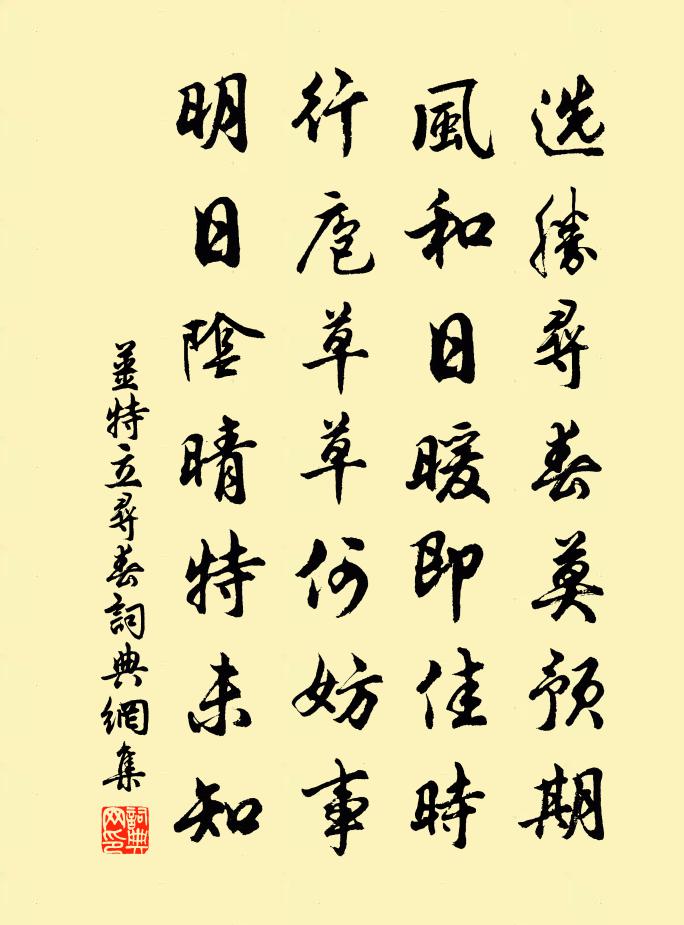 选勝尋春莫預期
風和日暖即佳時
行庖草草何妨事
明日陰晴特未知
薑特立尋春詞典網集
詞典網印